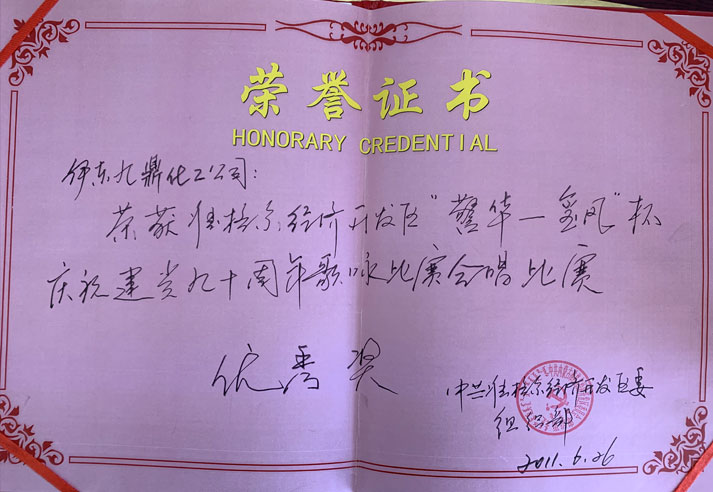 荣誉证书
HONORARY CREDENTIAL
伊东九鼎化工公司:
荣获准格尔经济开发区"蓥华—金风"杯
庆祝建党九十周年歌咏比赛合唱比赛
优秀奖
中共准格尔经济开发区委
组织部
2011.6.26